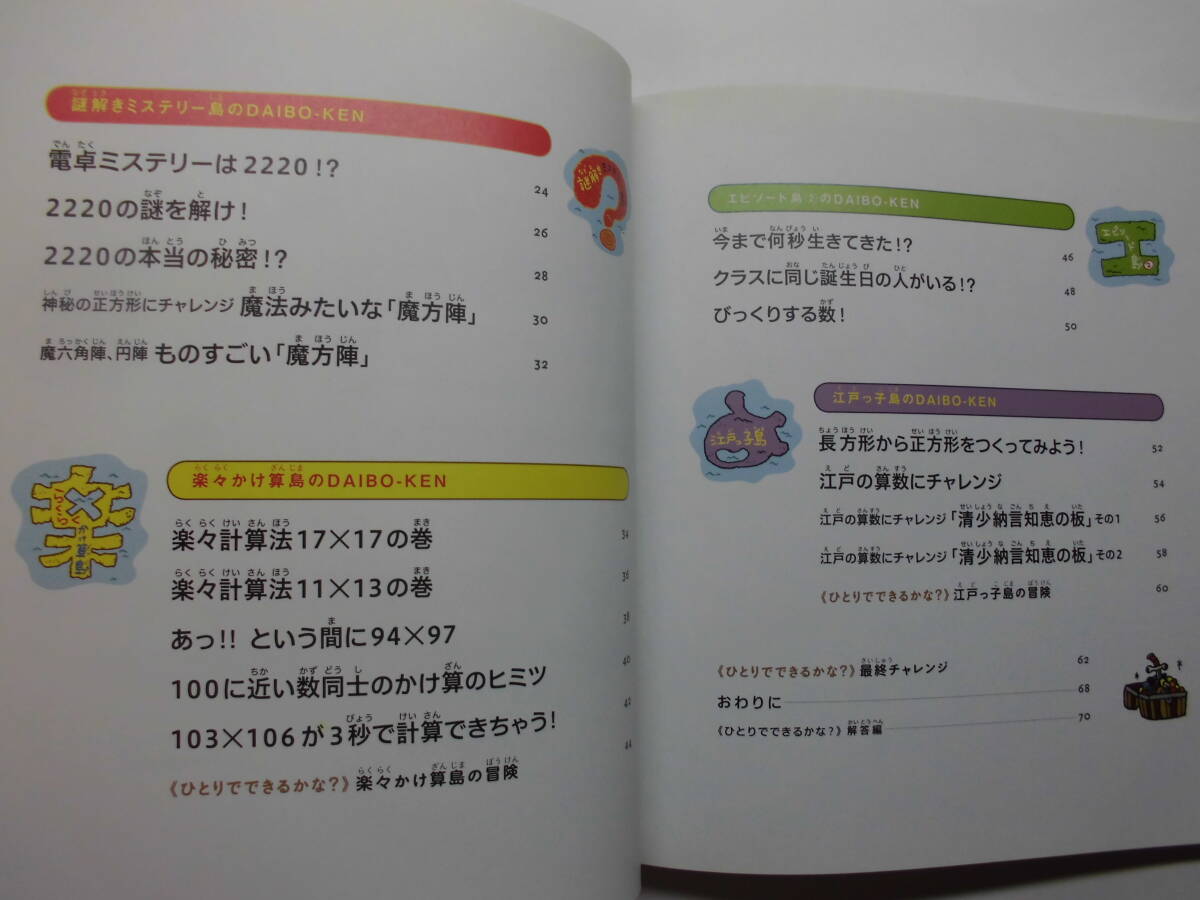 謎解きミステリー島のDAIBO-KEN
電卓ミステリーは2220!? 24
2220の謎を解け! 26
2220の本当の秘密!? 28
神秘の正方形にチャレンジ 魔法みたいな「魔方陣」 30
魔六角陣、円陣 ものすごい「魔方陣」 32
謎解き
楽々かけ算島のDAIBO-KEN
らくらくかけ算島
楽々計算法17×17の巻 34
楽々計算法11×13の巻 36
あっ!! という間に94×97 38
100に近い数同士のかけ算のヒミツ 40
103×106が3秒で計算できちゃう! 42
《ひとりでできるかな?》楽々かけ算島の冒険 44
エピソード島②のDAIBO-KEN
エピソード島②
今まで何秒生きてきた!? 46
クラスに同じ誕生日の人がいる!? 48
びっくりする数! 50
江戸っ子島のDAIBO-KEN
江戸っ子島
長方形から正方形をつくってみよう! 52
江戸の算数にチャレンジ 54
江戸の算数にチャレンジ「清少納言知恵の板」その1 56
江戸の算数にチャレンジ「清少納言知恵の板」その2 58
《ひとりでできるかな?》江戸っ子島の冒険 60
《ひとりでできるかな?》最終チャレンジ 62
おわりに 68
《ひとりでできるかな?》解答編 70